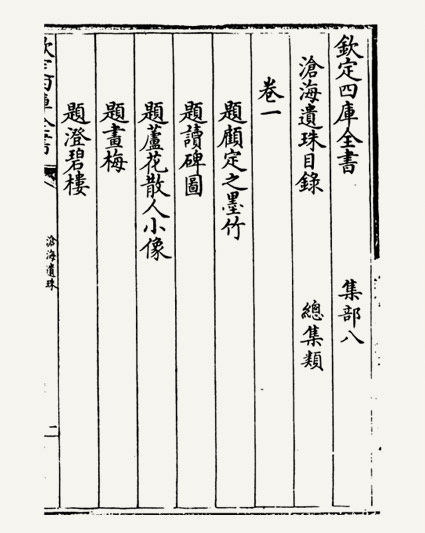 欽定四庫全書 集部八
滄海遺珠目錄 總集類
卷一
題顧定之墨竹
題讀碑圖
題蘆花散人小像
題畫梅
題澄碧樓
欽定四庫全書
滄海遺珠
二